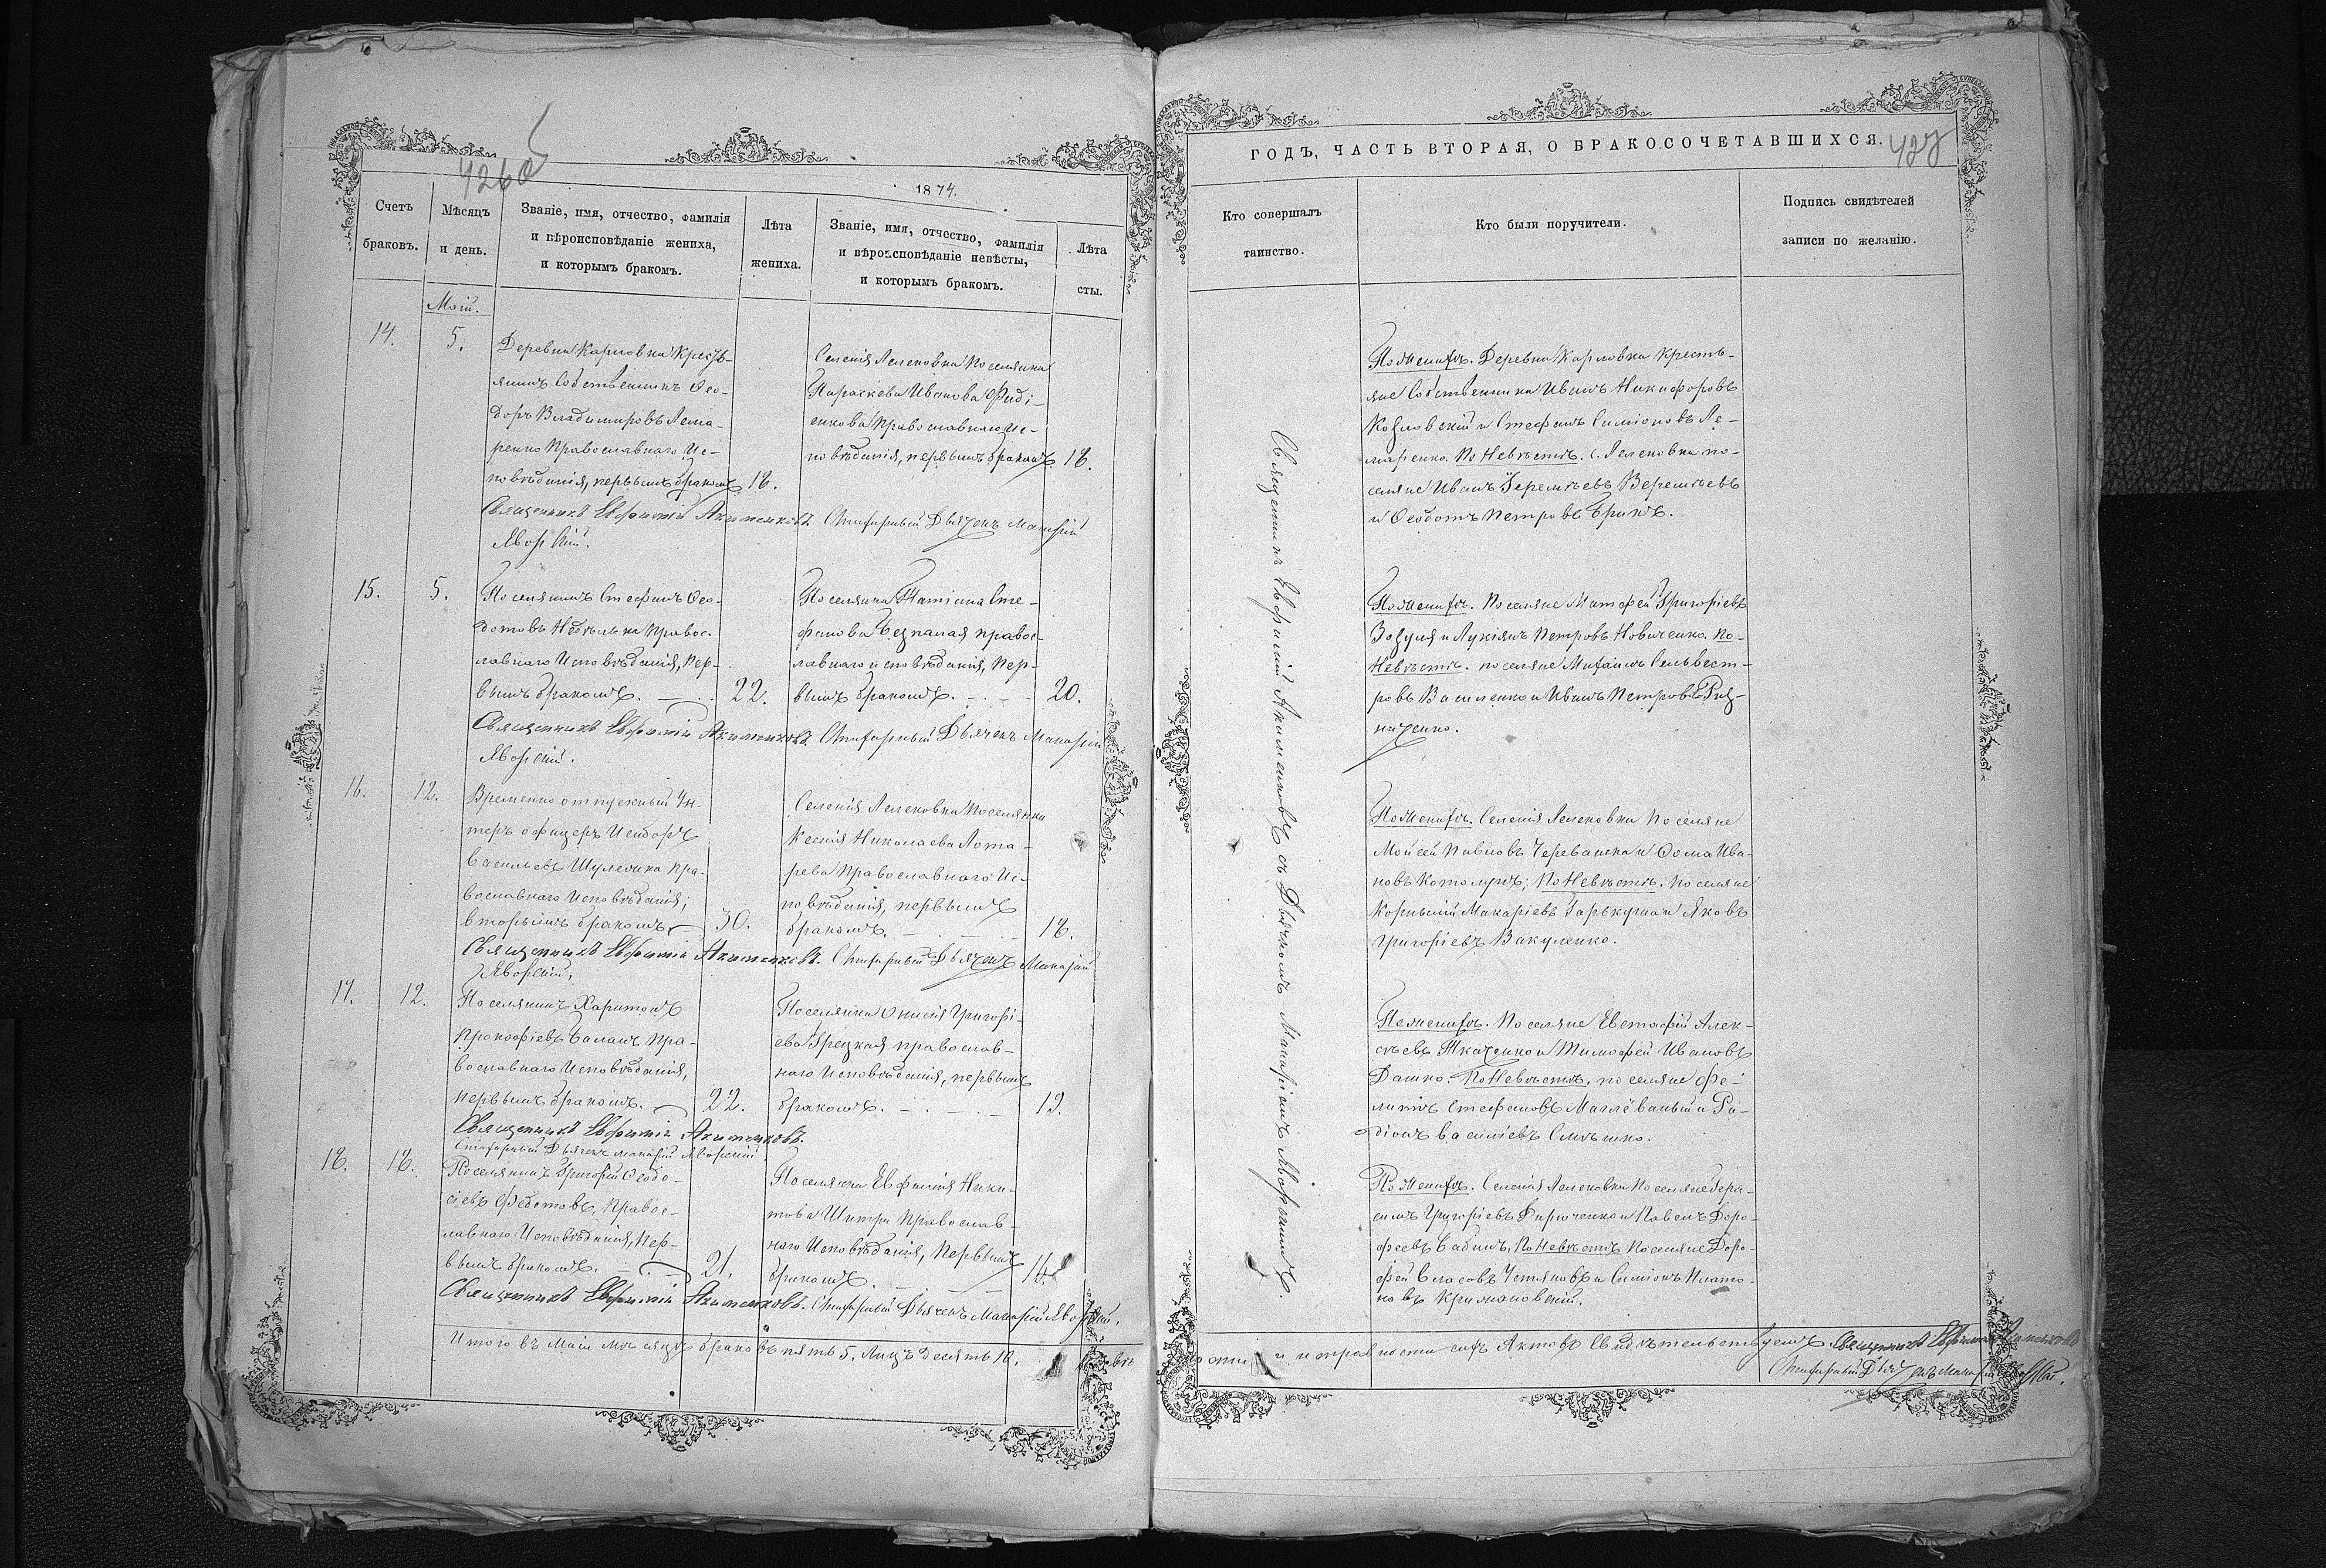 426 об
1874.
Счетъ
браковъ.
Мѣсяцъ
и день.
Званіе, имя, отчество, фамилія
и вѣроисповѣданіе жениха,
и которымъ бракомъ.
Лѣта
жениха.
Званіе, имя, отчество, фамилія
и вѣроисповѣданіе невѣсты,
и которымъ бракомъ.
Лѣта
сты.
Маій.
14.
5.
Деревни Карловки Кресть-
янинъ Собственникъ Ѳео-
доръ Владимировъ Лема-
ренко Православнаго Ис-
повѣданія, первымъ бракомъ
18.
Селенія Пелеховки Поселянка
Параскева Иванова Фиді-
енкова Православнаго Ис-
повѣданія, первымъ бракомъ
18.
Священникъ Евфимій Акименковъ. Стихарный Дьячекъ Макарій
Яворскій.
15.
5.
Поселянинъ Стефанъ Ѳео-
дотовъ Недѣлька Правос-
лавнаго Исповѣданія, пер-
вымъ бракомъ.
22.
Поселянка Татіана Сте-
фанова Безпалая правос-
лавнаго исповѣданія, пер-
вымъ бракомъ.
20.
Священникъ Евфимій Акименковъ. Стихарный Дьячекъ Макарій
Яворскій.
16.
12.
Временно отпускный Ун-
теръ офицеръ Исидоръ
Васильевъ Шулежка Пра-
вославнаго Исповѣданія;
вторымъ бракомъ
30.
Селенія Пелеховки Поселянка
Ксенія Николаева Лота-
рева Православнаго Ис-
повѣданія, первымъ
бракомъ.
18.
Священникъ Евфимій Акименковъ. Стихарный Дьячекъ Макарій
Яворскій.
17.
12.
Поселянинъ Харитонъ
Прокофіевъ Баланъ Пра-
вославнаго Исповѣданія,
первымъ бракомъ.
22.
Поселянка Онисія Григорі-
ева Грецкая православ-
наго Исповѣданія, первымъ
бракомъ.
19.
Священникъ Евфимій Акименковъ.
Стихарный Дьячекъ Макарій Яворскій
18.
18.
Поселянинъ Григорій Ѳеодо-
сіевъ Федотовъ, Правос-
лавнаго Исповѣданія, пер-
вымъ бракомъ.
21.
Поселянка Евфимія Ники-
това Шитри Православ-
наго Исповѣданія, первымъ
бракомъ
Священникъ Евфимій Акименковъ. Стихарный Дьячекъ Макарій Яворскій.
Итого въ Маіи мѣсяцѣ браковъ пять 5. Лицъ десять 10.
ГОДЪ, ЧАСТЬ ВТОРАЯ, О БРАКОСОЧЕТАВШИХСЯ.
427
Кто совершалъ
таинство.
Кто были поручители.
Подпись свидѣтелей
записи по желанію.
Священникъ Евфимій Акименковъ съ Дьячкомъ Макаріемъ Яворскимъ.
По Женихѣ. Деревни Карловки Кресть-
яне Собственники Иванъ Никифоровъ
Козловскій и Стефанъ Симіоновъ Ле-
маренко. По Невѣстѣ. с. Пелеховки по-
селяне Иванъ Веремѣевъ
и Ѳеодотъ Петровъ
По Женихѣ. Поселяне Матфей Григоріевъ
Зозуля и Лукіянъ Петровъ Новиченко. По-
Невѣстѣ. поселяне Михаилъ Сельвест-
ровъ Василенко и Иванъ Петровъ Риз-
ниченко.
По Женихѣ. Селенія Пелеховки Поселяне
Мойсей Павловъ Череватка и Ѳома Ива-
новъ; По Невѣстѣ. Поселяне
Корнилій Макаріевъ Гарькуша и Яковъ
Григоріевъ Вакуленко.
По Женихѣ. Поселяне Евстафій Алек-
сѣевъ Ткаченко и Тимофей Ивановъ
Дашко. По Невѣстѣ. поселяне Фе-
Стефановъ Маглёваный и Ра-
діонъ Василіевъ Смѣшко.
По Женихѣ. Селенія Пелеховки Поселяне Гера-
симъ Григоріевъ Кирюченко и Павелъ Доро-
феевъ Бабичъ. По Невѣстѣ Поселяне Доро-
фей Власовъ и Симіонъ Плато-
новъ Крижановскій.
и исправности сихъ Актовъ Свидѣтельствуемъ Священникъ Евфимій Акименковъ
Стихарный Дьячекъ Макарій Яворскій.